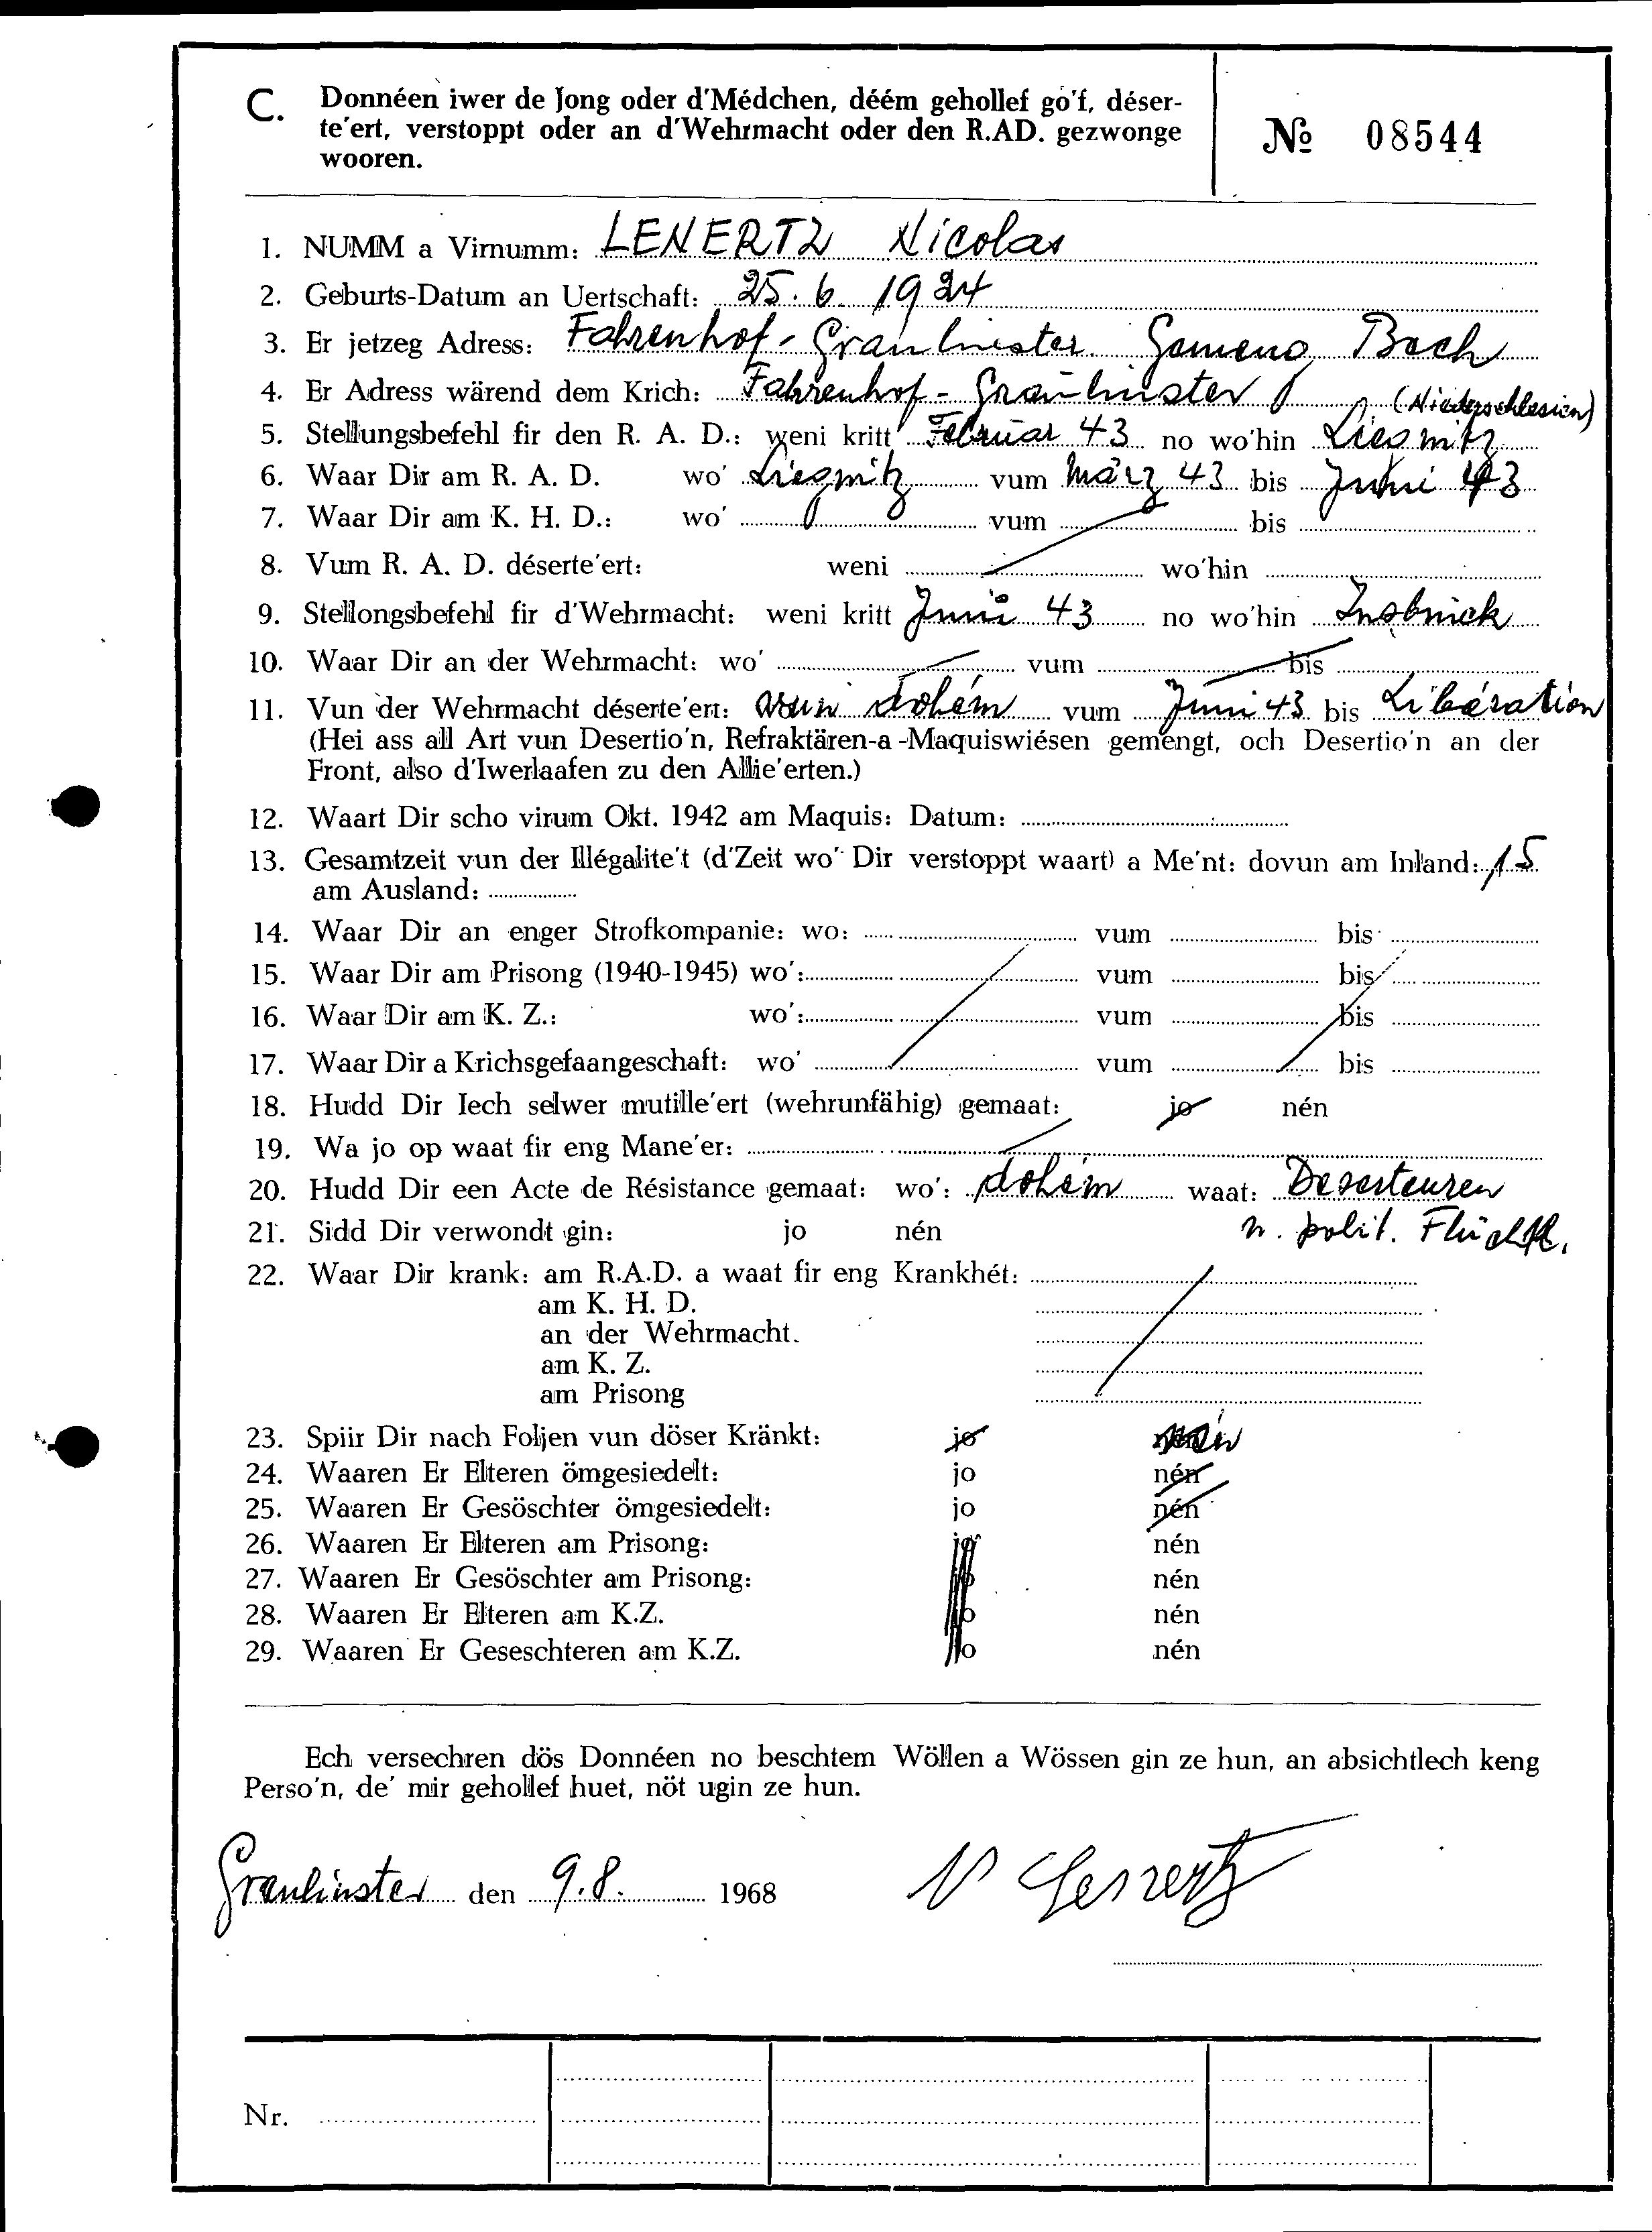 C. Donnéen iwer de Jong oder d'Médchen, déém gehollef go'f, déser-
te'ert, verstoppt oder an d'Wehrmacht oder den R.AD. gezwonge
wooren.
№ 08544
1. NUMM a Virnumm: LENERTZ Nicolas
2. Geburts-Datum an Uertschaft: 25. 6. 1924
3. Er jetzeg Adress: Fahrenhof - Graulinster Gemeng Bech
4. Er Adress wärend dem Krich: Fahrenhof - Graulinster
(Niederschlesien)
5. Stellungsbefehl fir den R. A. D.: weni kritt Februar 43 no wo'hin Liegnitz
6. Waar Dir am R. A. D. wo' Liegnitz vum März 43 bis Juni 43
7. Waar Dir am K. H. D.: wo' vum bis
8. Vum R. A. D. déserte'ert: weni wo'hin
9. Stellongsbefehl fir d'Wehrmacht: weni kritt Juni 43 no wo'hin Insbruck
10. Waar Dir an der Wehrmacht: wo' vum bis
11. Vun der Wehrmacht déserte'ert: vun dohém vum Juni 43 bis Libération
(Hei ass all Art vun Desertio'n, Refraktären-a-Maquiswiésen gemengt, och Desertio'n an der
Front, also d'Iwerlaafen zu den Allie'erten.)
12. Waart Dir scho virum Okt. 1942 am Maquis: Datum:
13. Gesamtzeit vun der Illégalite't (d'Zeit wo' Dir verstoppt waart) a Me'nt: dovun am Inland: 15
am Ausland:
14. Waar Dir an enger Strofkompanie: wo: vum bis
15. Waar Dir am Prisong (1940-1945) wo': vum bis
16. Waar Dir am K. Z.: wo': vum bis
17. Waar Dir a Krichsgefaangeschaft: wo' vum bis
18. Hudd Dir Iech selwer mutille'ert (wehrunfähig) gemaat: jo nén
19. Wa jo op waat fir eng Mane'er:
20. Hudd Dir een Acte de Résistance gemaat: wo': dohém waat: Deserteuren
21. Sidd Dir verwondt gin: jo nén u. polit. Flüchtl.
22. Waar Dir krank: am R.A.D. a waat fir eng Krankhét:
am K. H. D.
an der Wehrmacht.
am K. Z.
am Prisong
23. Spiir Dir nach Foljen vun döser Kränkt: jo nén
24. Waaren Er Elteren ömgesiedelt: jo nén
25. Waaren Er Gesöschter ömgesiedelt: jo nén
26. Waaren Er Elteren am Prisong: jo nén
27. Waaren Er Gesöschter am Prisong: jo nén
28. Waaren Er Elteren am K.Z. jo nén
29. Waaren Er Geseschteren am K.Z. jo nén
Ech versechren dös Donnéen no beschtem Wöllen a Wössen gin ze hun, an absichtlech keng
Perso'n, de' mir gehollef huet, nöt ugin ze hun.
Graulinster den 9.8. 1968 N Lenertz
Nr.